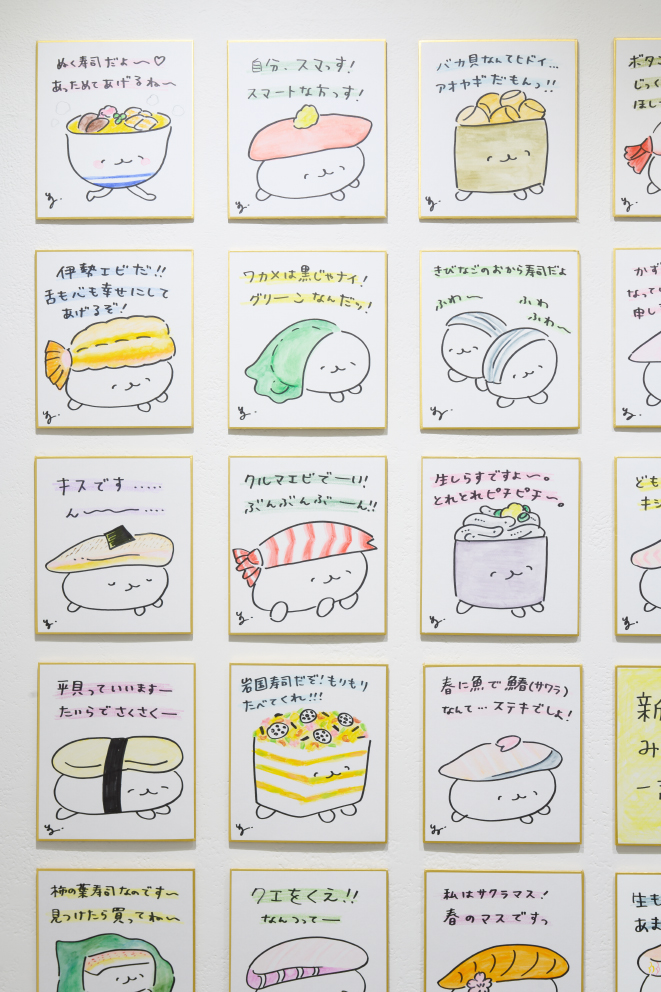 ぬく寿司だよ〜♡
あっためてあげるね〜
自分、スマっす!
スマートなおっす!
バカ貝なんてヒドイ...
アオヤギだもんっ!!
ボタン
じっく
ほし
伊勢エビだ!!
舌も心も幸せにして
あげるぞ!
ワカメは黒じゃナイ!
グリーンなんだッ!
きびなごのおから寿司だよ
ふわ〜
ふわ
ふわ〜
かず
なってい
申し
キスです.....
ん〜〜.....
クルマエビでーい!
ぶんぶんぶーーん!!
生しらすですよ〜。
とれとれピチピチ〜。
ども
キジ
平貝っていいますー
たいらでさくさくー
岩国寿司だぞ!もりもり
たべてくれ!!!
春に魚で鰆(サワラ)
なんて...ステキでしょ!
新
み
柿の葉寿司なのです〜
見つけたら買ってね〜
クエをくえ!!
なんつってー
私はサクラマス!
春のマスですっ
生も
あま